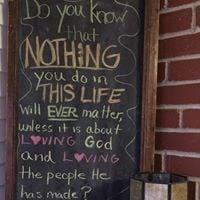 Do you know
that
NOTHING
you do in
THIS LIFE
will EVER matter,
unless it is about
LOVING God
and LOVING
the people He
has made?